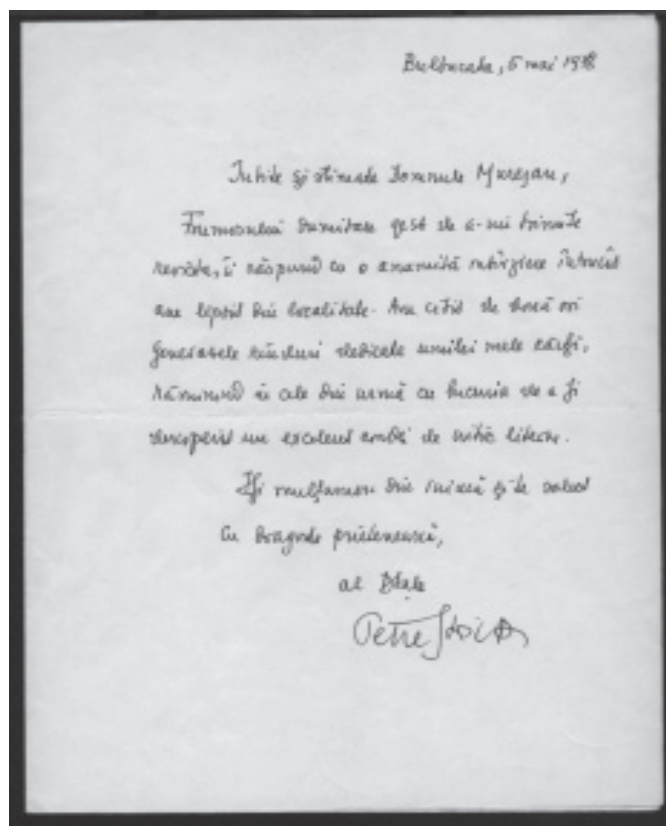 Bulbucata, 6 mai 1978
Iubite și stimate Domnule Mureșan,
Frumosului Dumitale gest de a-mi trimite
revista, îi răspund cu o anumită întîrziere întrucît
am lipsit din localitate. Am citit de două ori
generoasele rînduri dedicate umilei mele cărți,
rămînînd în cele din urmă cu bucuria de a fi
descoperit un excelent de critic literar.
Îți mulțumesc din inimă și te salut
cu dragoste prietenească,
al Dtale
Petre Stoica